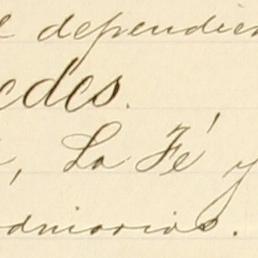 l dependien
edes.
, La Fé y
dniarios.